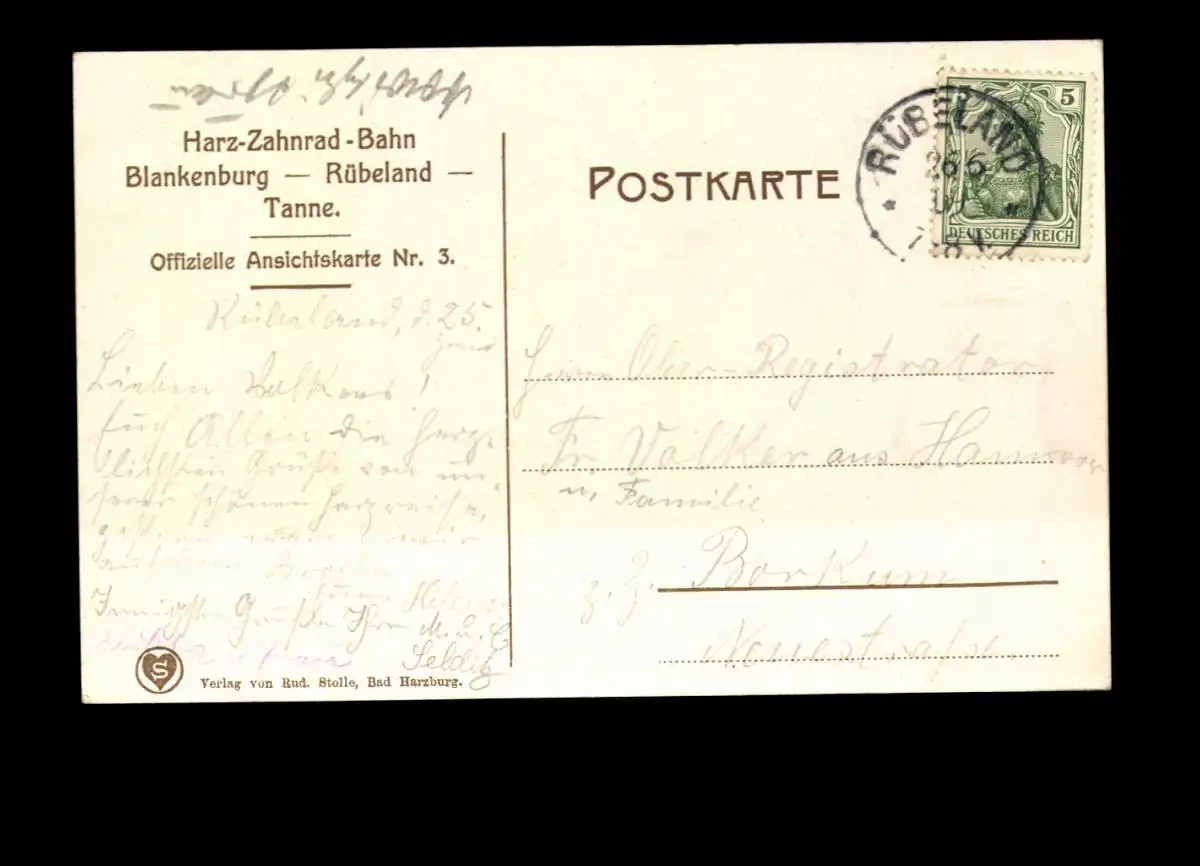 Harz-Zahnrad-Bahn
Blankenburg — Rübeland —
Tanne.
Offizielle Ansichtskarte Nr. 3.
Rübeland, d. 25.
Lieben Volkers!
Euch Allen die herz-
lichsten Grüße von un-
serer schönen Harzreise,
gestern waren wir
auf dem Brocken
Helene
Innigste Grüße Ihre M. u. C.
Selditz
S
Verlag von Rud. Stolle, Bad Harzburg.
POSTKARTE
RÜBELAND
26 6
7-8 V
5
DEUTSCHES REICH
Herrn Ober-Registrator
Fr. Völker aus Hannover
u. Familie
z. Z. Borkum
Neuestraße.